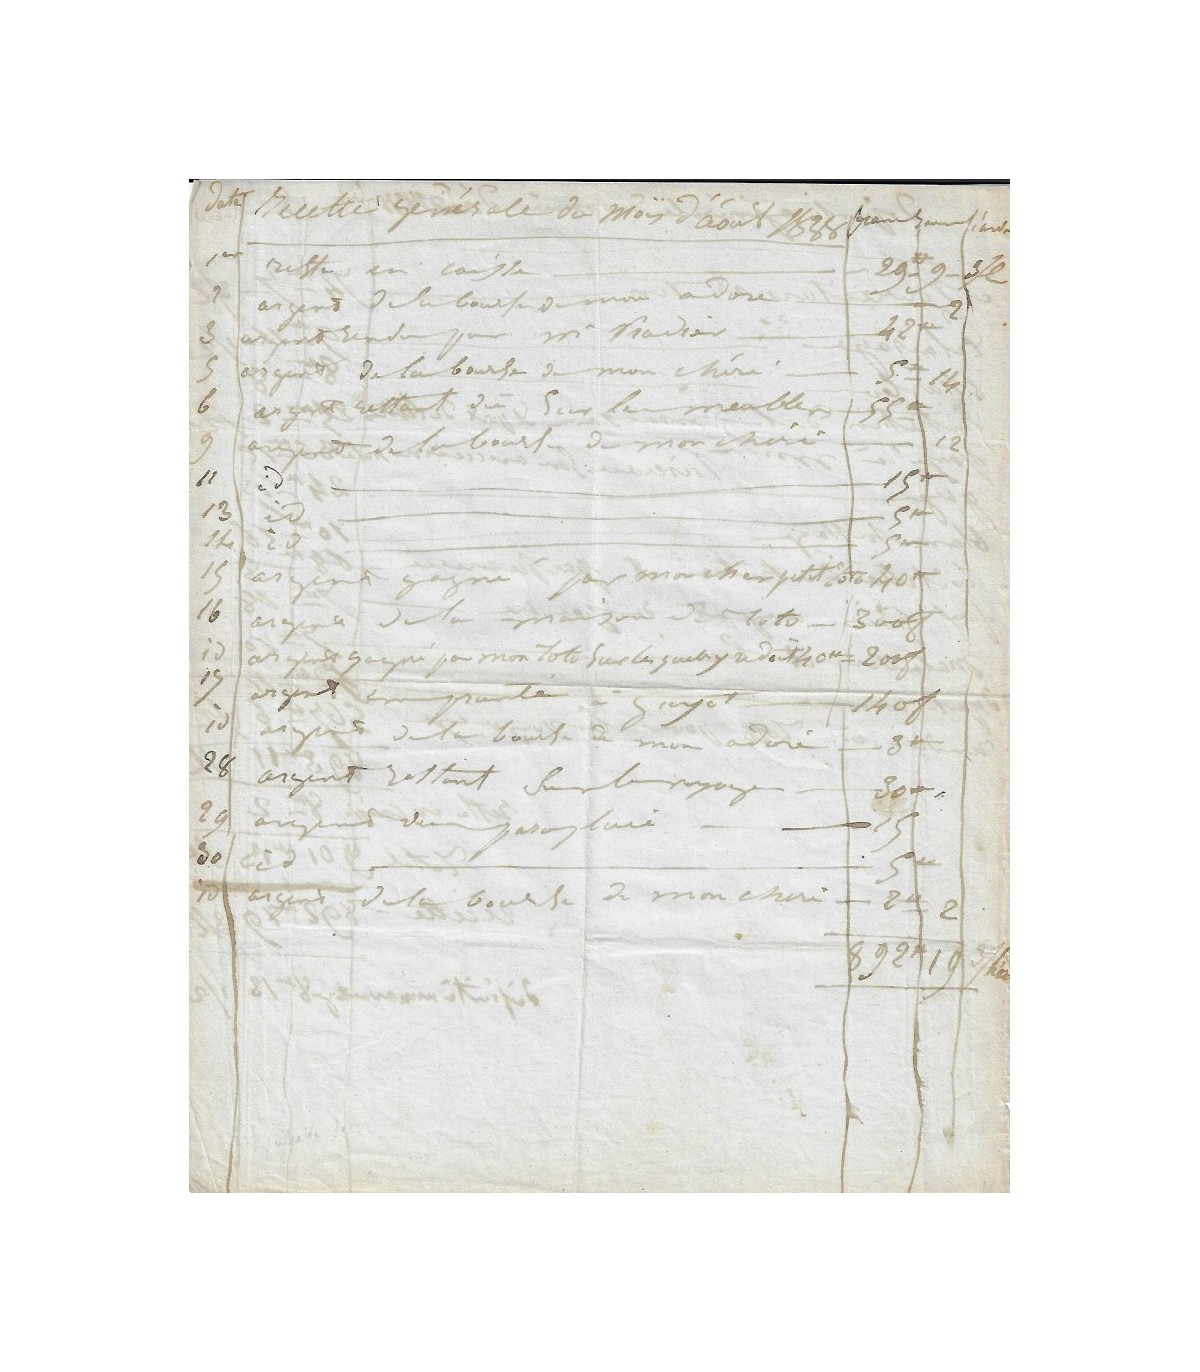 date Recette générale du mois d'août 1838 francs sous liards
1er reste en caisse 29 ₶ 9 3/l
2 argent de la bourse de mon adoré 2
3 argent rendu par Mr Pradier 42 ₶
5 argent de la bourse de mon chéri 5 ₶ 14
6 argent restant dû sur les meubles 55 ₶
9 argent de la bourse de mon chéri 12
11 id 15 ₶
13 id 5 ₶
14 id 5 ₶
15 argent gagné par mon cher petit toto 40 ₶
16 argent de la maison de toto 300 f
id argent gagné par mon toto sur 40 ₶ = 200 f
argent emprunté à 140 f
id argent de la bourse de mon adoré 3 ₶
28 argent restant sur le voyage 30 ₶ "
29 argent d'un parapluie 15
30 id 5 ₶
id argent de la bourse de mon chéri 2 ₶ 2
892 ₶ 19 3/